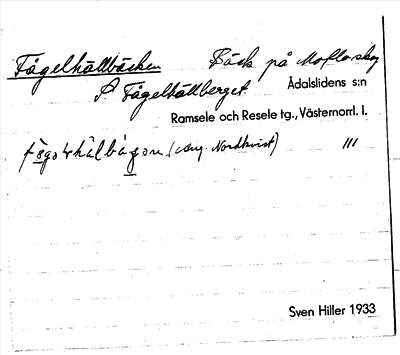 Fågelhällbäcken Bäck på Moflosskog
På Fågelhällberget. Ådalslidens s:n
Ramsele och Resele tg., Västernorrl. l.
(Aug. Nordkvist) III
Sven Hiller 1933